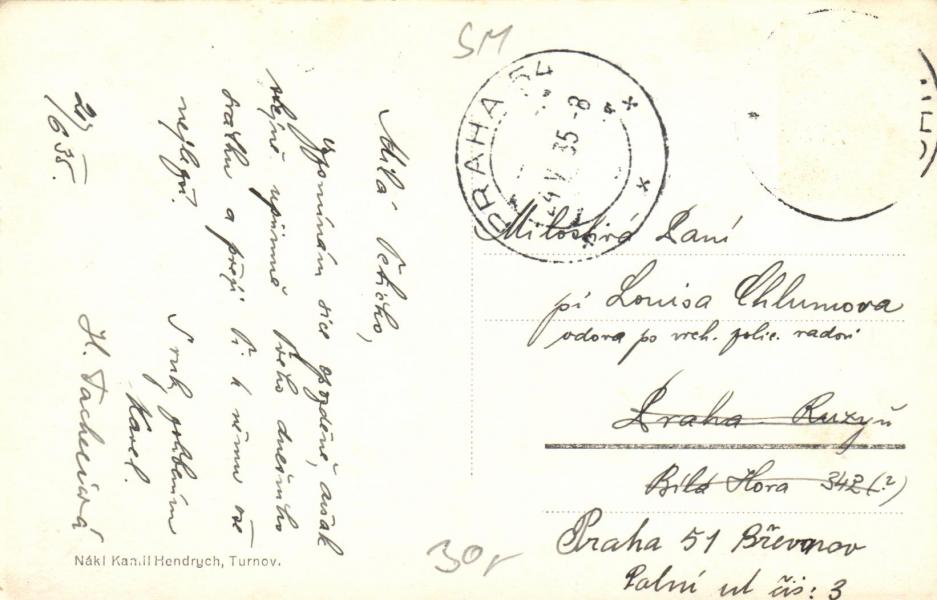 Milá Tetičko,
Vzpomínám sice opožděně, avšak
stejně upřímně Tvého dnešního
svátku a přeji Ti k němu vše
nejlepší.
S ruky políbením
Karel.
H. Tacheciová
2/6 35.
Nákl Kamil Hendrych, Turnov.
SM
PRAHA 54
V 35 -8
Milostivá Paní
pí Louisa Chlumova
vdova po vrch. polic. radovi
Praha Ruzyň
Bílá Hora 342(?)
Praha 51 Břevnov
Polní ul čís: 3
30,-